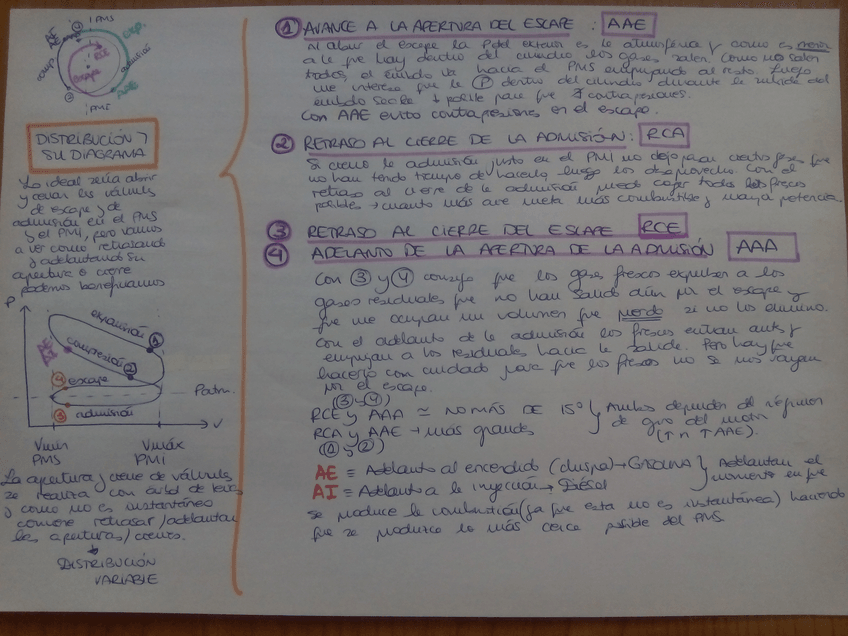 PMS
AE
AI
exp.
admisión
escape
comp
AAE
PMI
DISTRIBUCIÓN Y
SU DIAGRAMA
Lo ideal sería abrir
y cerrar las válvulas
de escape y de
admisión en el PMS
y el PMI, pero vamos
a ver como retrasando
y adelantando su
apertura o cierre
podemos beneficiarnos
P
expansión
①
AE
AI
compresión
②
④ escape
Patm.
③ admisión
V
Vmín Vmáx
PMS PMI
La apertura y cierre de válvulas
se realiza con árbol de levas
y como no es instantáneo
conviene retrasar/adelantar
las aperturas/cierres.
↓
DISTRIBUCIÓN
VARIABLE
① AVANCE A LA APERTURA DEL ESCAPE : AAE
Al abrir el escape la P del exterior es la atmosférica y como es menor
a la que hay dentro del cilindro los gases salen. Como no salen
todos, el émbolo va hacia el PMS empujando al resto. Luego
me interesa que la P dentro del cilindro durante la subida del
émbolo sea la ↓ posible para que ∄ contrapresiones.
Con AAE evito contrapresiones en el escape.
② RETRASO AL CIERRE DE LA ADMISIÓN: RCA
Si cierro la admisión justo en el PMI no dejo para entrar gases que
no han tenido tiempo de hacerlo, luego los desaprovecho. Con el
retraso al cierre de la admisión puedo coger todos los frescos
posibles → cuanto más aire meta más combustible y mayor potencia.
③ RETRASO AL CIERRE DEL ESCAPE RCE
④ ADELANTO DE LA APERTURA DE LA ADMISIÓN AAA
Con ③ y ④ consigo que los gases frescos expulsen a los
gases residuales que no han salido aún por el escape y
que me ocupan un volumen que pierdo si no los elimino.
Con el adelanto de la admisión los frescos entran antes y
empujan a los residuales hacia la salida. Pero hay que
hacerlo con cuidado para que los frescos no se nos vayan
por el escape.
(③ y ④)
RCE y AAA ≃ no más DE 15º } Ambos dependen del régimen
RCA y AAE → más grandes de giro del motor
(① y ②) (↑n ↑AAE).
AE ≡ Adelanto al encendido (chispa) → GASOLINA } Adelantan el
AI ≡ Adelanto a la inyección → Diésel momento en que
se produce la combustión (ya que esta no es instantánea) haciendo
que se produzca lo más cerca posible del PMS.